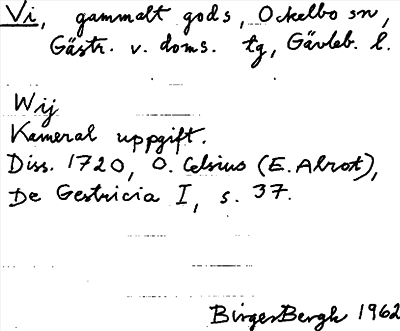 Vi, gammalt gods, Ockelbo sn,
Gästr. v. doms. tg, Gävleb. l.
Wij
Kameral uppgift.
Diss. 1720, O. Celsius (E. Alrot),
De Gestricia I, s. 37.
Birger Bergh 1962